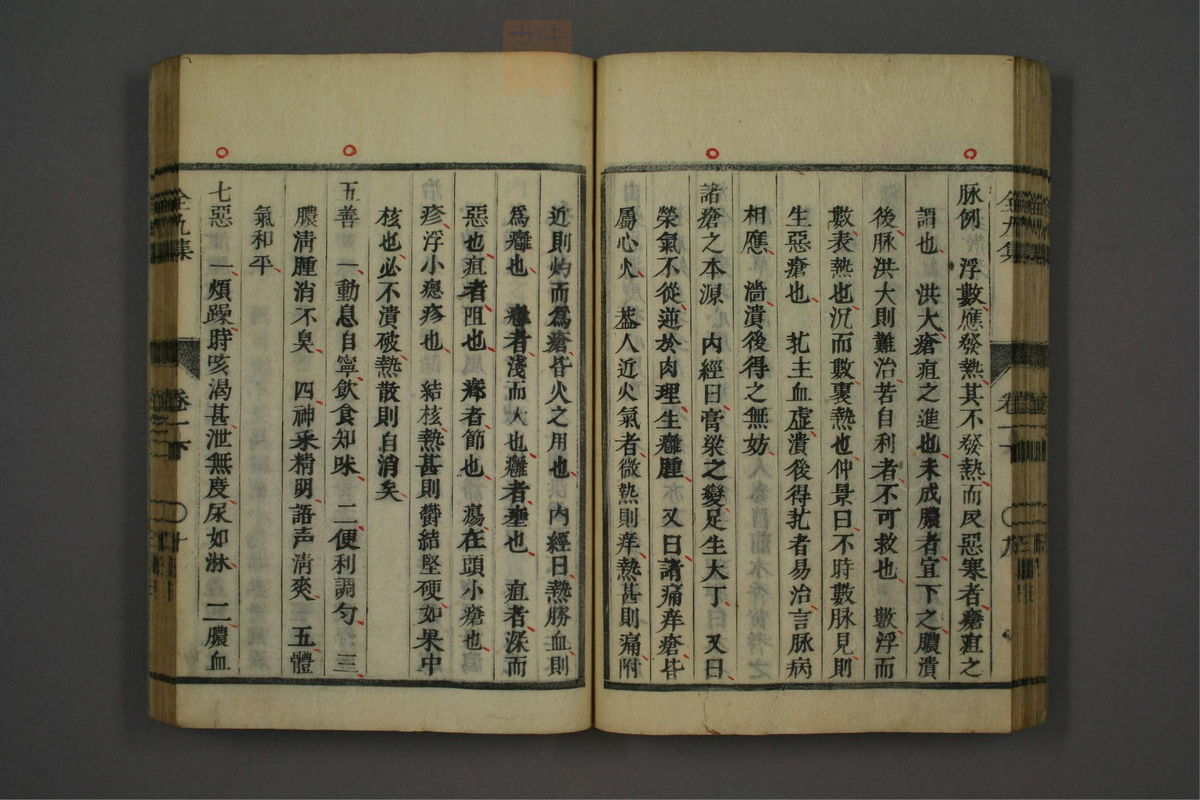 脉例 浮數應發熱其不發熱而反惡寒者瘡疽之
謂也 洪大瘡疽之進也未成膿者宜下之膿潰
後脉洪大則難治若自利者不可救也 數浮而
數表熱也沉而數裏熱也仲景曰不時數脉見則
生惡瘡也 芤主血虛潰後得芤者易治言脉病
相應 濇潰後得之無妨
諸瘡之本源 内經曰膏粱之變足生大丁 又曰
榮氣不從逆於肉理生癰腫 又曰諸痛痒瘡皆
屬心火 盖人近火氣者微熱則痒熱甚則痛附
近則灼而爲瘡皆火之用也 内經曰熱勝血則
爲癰也 者淺而大也癰者壅也 疽者深而
惡也疽者阻也 癤者節也 瘍在頭小瘡也
疹浮小癮疹也 結核熱甚則欝結堅硬如果中
核也必不潰破熱散則自消矣
五善 一動息自寧飲食知味 二便利調匀 三
膿淸腫消不臭 四神采精明語声淸爽 五體
氣和平
七惡 一煩躁時咳渴甚泄無度尿如淋 二膿血
全九集
卷一下
九
全九集
卷一下
十